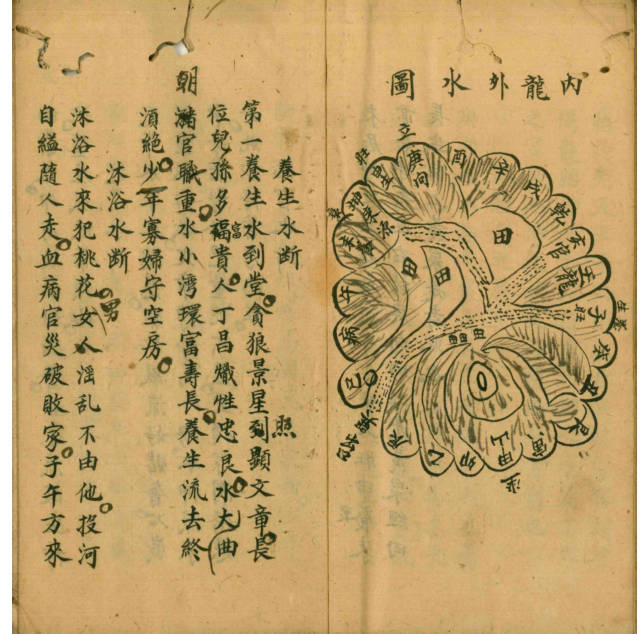 內龍外水圖
酉
辛
戌
乾
亥官
壬龍
子
癸
丑
艮
寅
甲山
卯
乙
辰
巳
病
午
坤
庚向
立
旺
田
田
田
養生水断
第一養生水到堂貪狼景星到照顯文章長
位兒孫多福富貴人丁昌熾性忠良水大曲
朝
官職重水小灣環富壽長養生流去終
湏絶少年寡婦守空房
沐浴水断
沐浴水來犯桃花男女人滛乱不由他投河
自縊隨人走血病官災破敗家子午方來